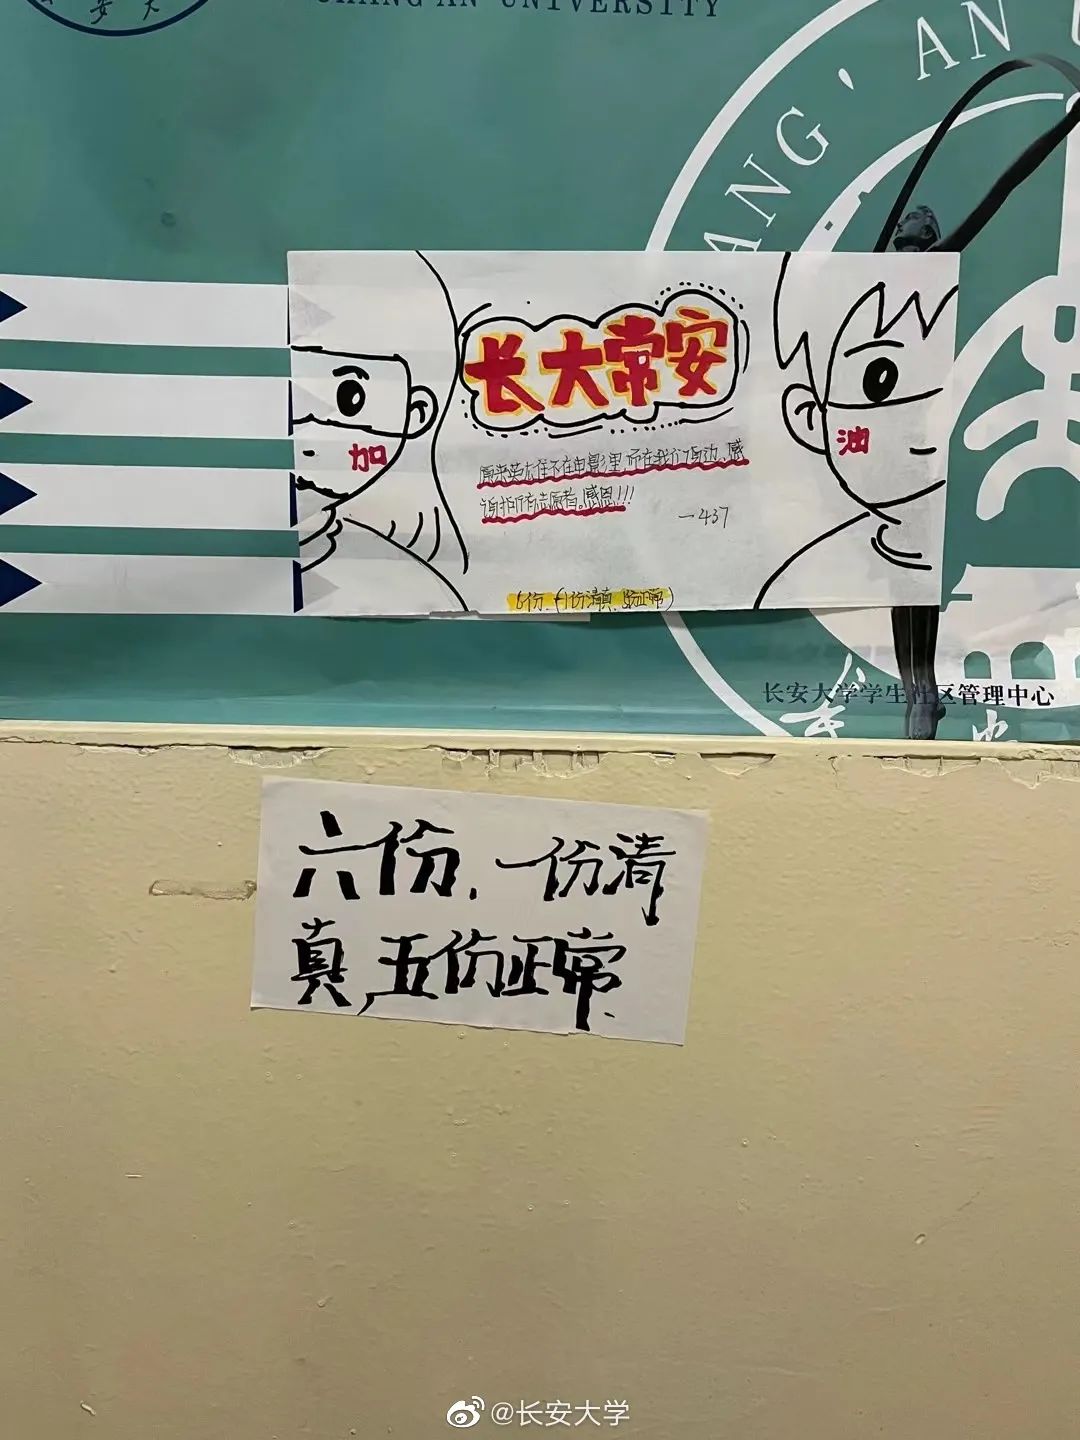 CHANG'AN UNIVERSITY
ANG'AN
长大常安
加
油
原来英雄不在电影里,而在我们身边、感
谢所有志愿者。感恩!!!
—437
6份.(1份清真、5份正常)
长安大学学生社区管理中心
六份,一份清
真,五份正常.
@长安大学